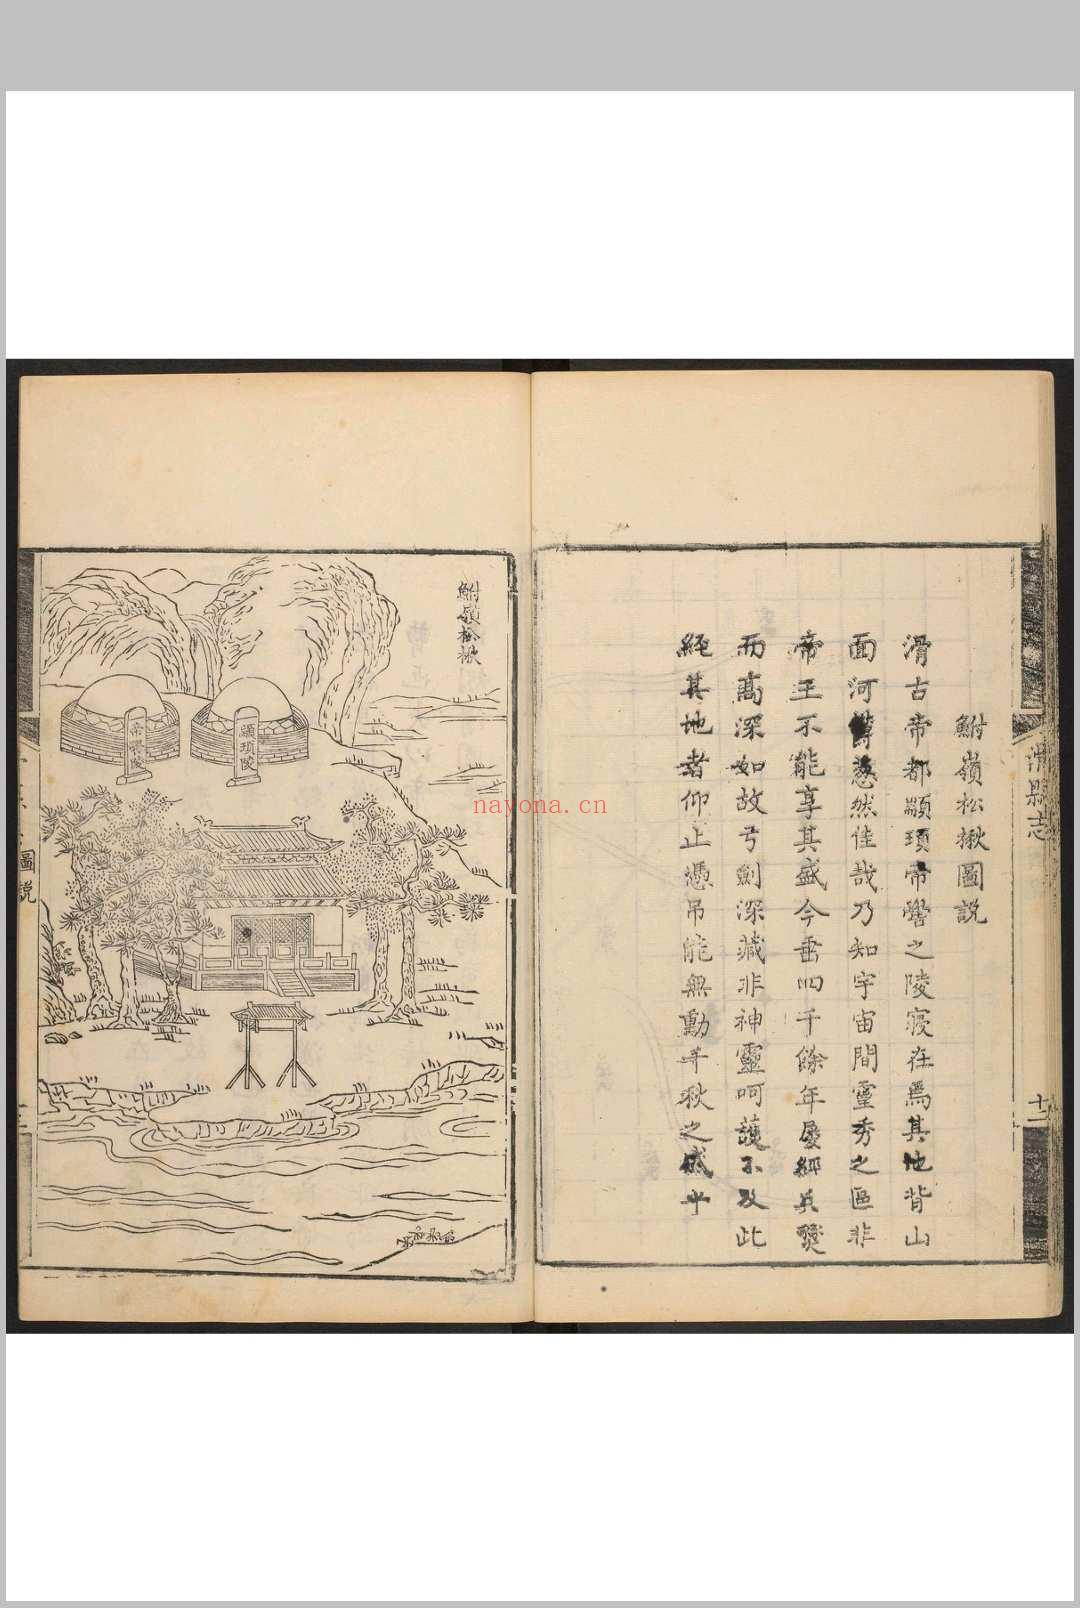 滑縣志
十二
鮒嶺松楸圖説
滑古帝都顓頊帝嚳之陵寢在焉其地背山
面河蔥然佳哉乃知宇宙間靈秀之區非
帝王不能享其盛今垂四千餘年屡經兵燹
而髙深如故弓劍深藏非神靈呵護不及此
經其地者仰止憑吊能無動千秋之感乎
鮒嶺松楸
顓頊陵
帝嚳陵
圖説
nayona.cn